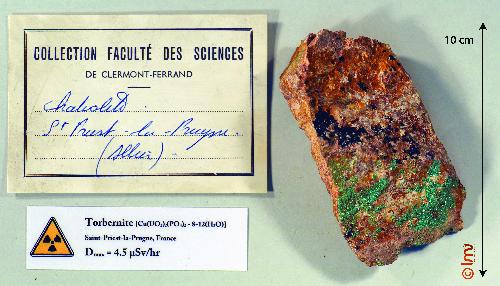 COLLECTION FACULTÉ DES SCIENCES
DE CLERMONT-FERRAND
Chalcolite.
St Priest-la-Prugne.
(Allier)-
Torbernite [Cu(UO₂)₂(PO₄)₂ - 8-12(H₂O)]
Saint-Priest-la-Prugne, France
= 4.5 µSv/hr
10 cm
© lmv